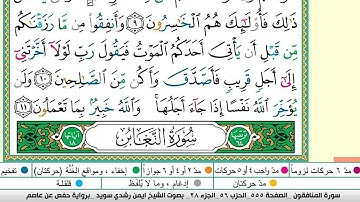 ذَٰلِكَ فَأُوْلَٰٓئِكَ هُمُ ٱلْخَٰسِرُونَ ٩ وَأَنفِقُوا۟ مِن مَّا رَزَقْنَٰكُم
مِّن قَبْلِ أَن يَأْتِىَ أَحَدَكُمُ ٱلْمَوْتُ فَيَقُولَ رَبِّ لَوْلَآ أَخَّرْتَنِىٓ
إِلَىٰٓ أَجَلٍ قَرِيبٍ فَأَصَّدَّقَ وَأَكُن مِّنَ ٱلصَّٰلِحِينَ ١٠ وَلَن
يُؤَخِّرَ ٱللَّهُ نَفْسًا إِذَا جَآءَ أَجَلُهَا وَٱللَّهُ خَبِيرٌۢ بِمَا تَعْمَلُونَ ١١
سُورَةُ التَّغَابُن
مدّ ٦ حركات لزوماً مدّ واجب ٤ أو ٥ حركات مدّ ٢ أو ٤ أو ٦ جوازاً إخفاء، ومواقع الغُنَّة (حركتان) تفخيم
مدّ حركتان إدغام، وما لا يُلفَظ قلقلة
سورة المنافقون _الصفحة ٥٥٥ _الحزب ٥٦ _الجزء ٢٨_ بصوت الشيخ ايمن رشدي سويد _برواية حفص عن عاصم